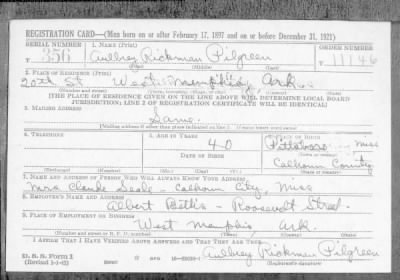 REGISTRATION CARD—(Men born on or after February 17, 1897 and on or before December 31, 1921)
SERIAL NUMBER 1. NAME (Print) ORDER NUMBER
T 356 Aubrey Rickman Pilgreen T 11146
(First) (Middle) (Last)
2. PLACE OF RESIDENCE (Print)
20th St West Memphis Ark
[THE PLACE OF RESIDENCE GIVEN ON THE LINE ABOVE WILL DETERMINE LOCAL BOARD
JURISDICTION; LINE 2 OF REGISTRATION CERTIFICATE WILL BE IDENTICAL]
3. MAILING ADDRESS
Same
[Mailing address if other than place indicated on line 2. If same insert word same]
4. TELEPHONE 5. AGE IN YEARS 6. PLACE OF BIRTH
40 Pittsboro Miss
DATE OF BIRTH Calhoun County
7. NAME AND ADDRESS OF PERSON WHO WILL ALWAYS KNOW YOUR ADDRESS
Mrs Claude Seale - Calhoun City, Miss
8. EMPLOYER'S NAME AND ADDRESS
Albert - Roosevelt Street -
9. PLACE OF EMPLOYMENT OR BUSINESS
West Memphis, Ark.
I AFFIRM THAT I HAVE VERIFIED ABOVE ANSWERS AND THAT THEY ARE TRUE.
D. S. S. Form 1 Aubrey Rickman Pilgreen
(Revised) (Registrant's signature)